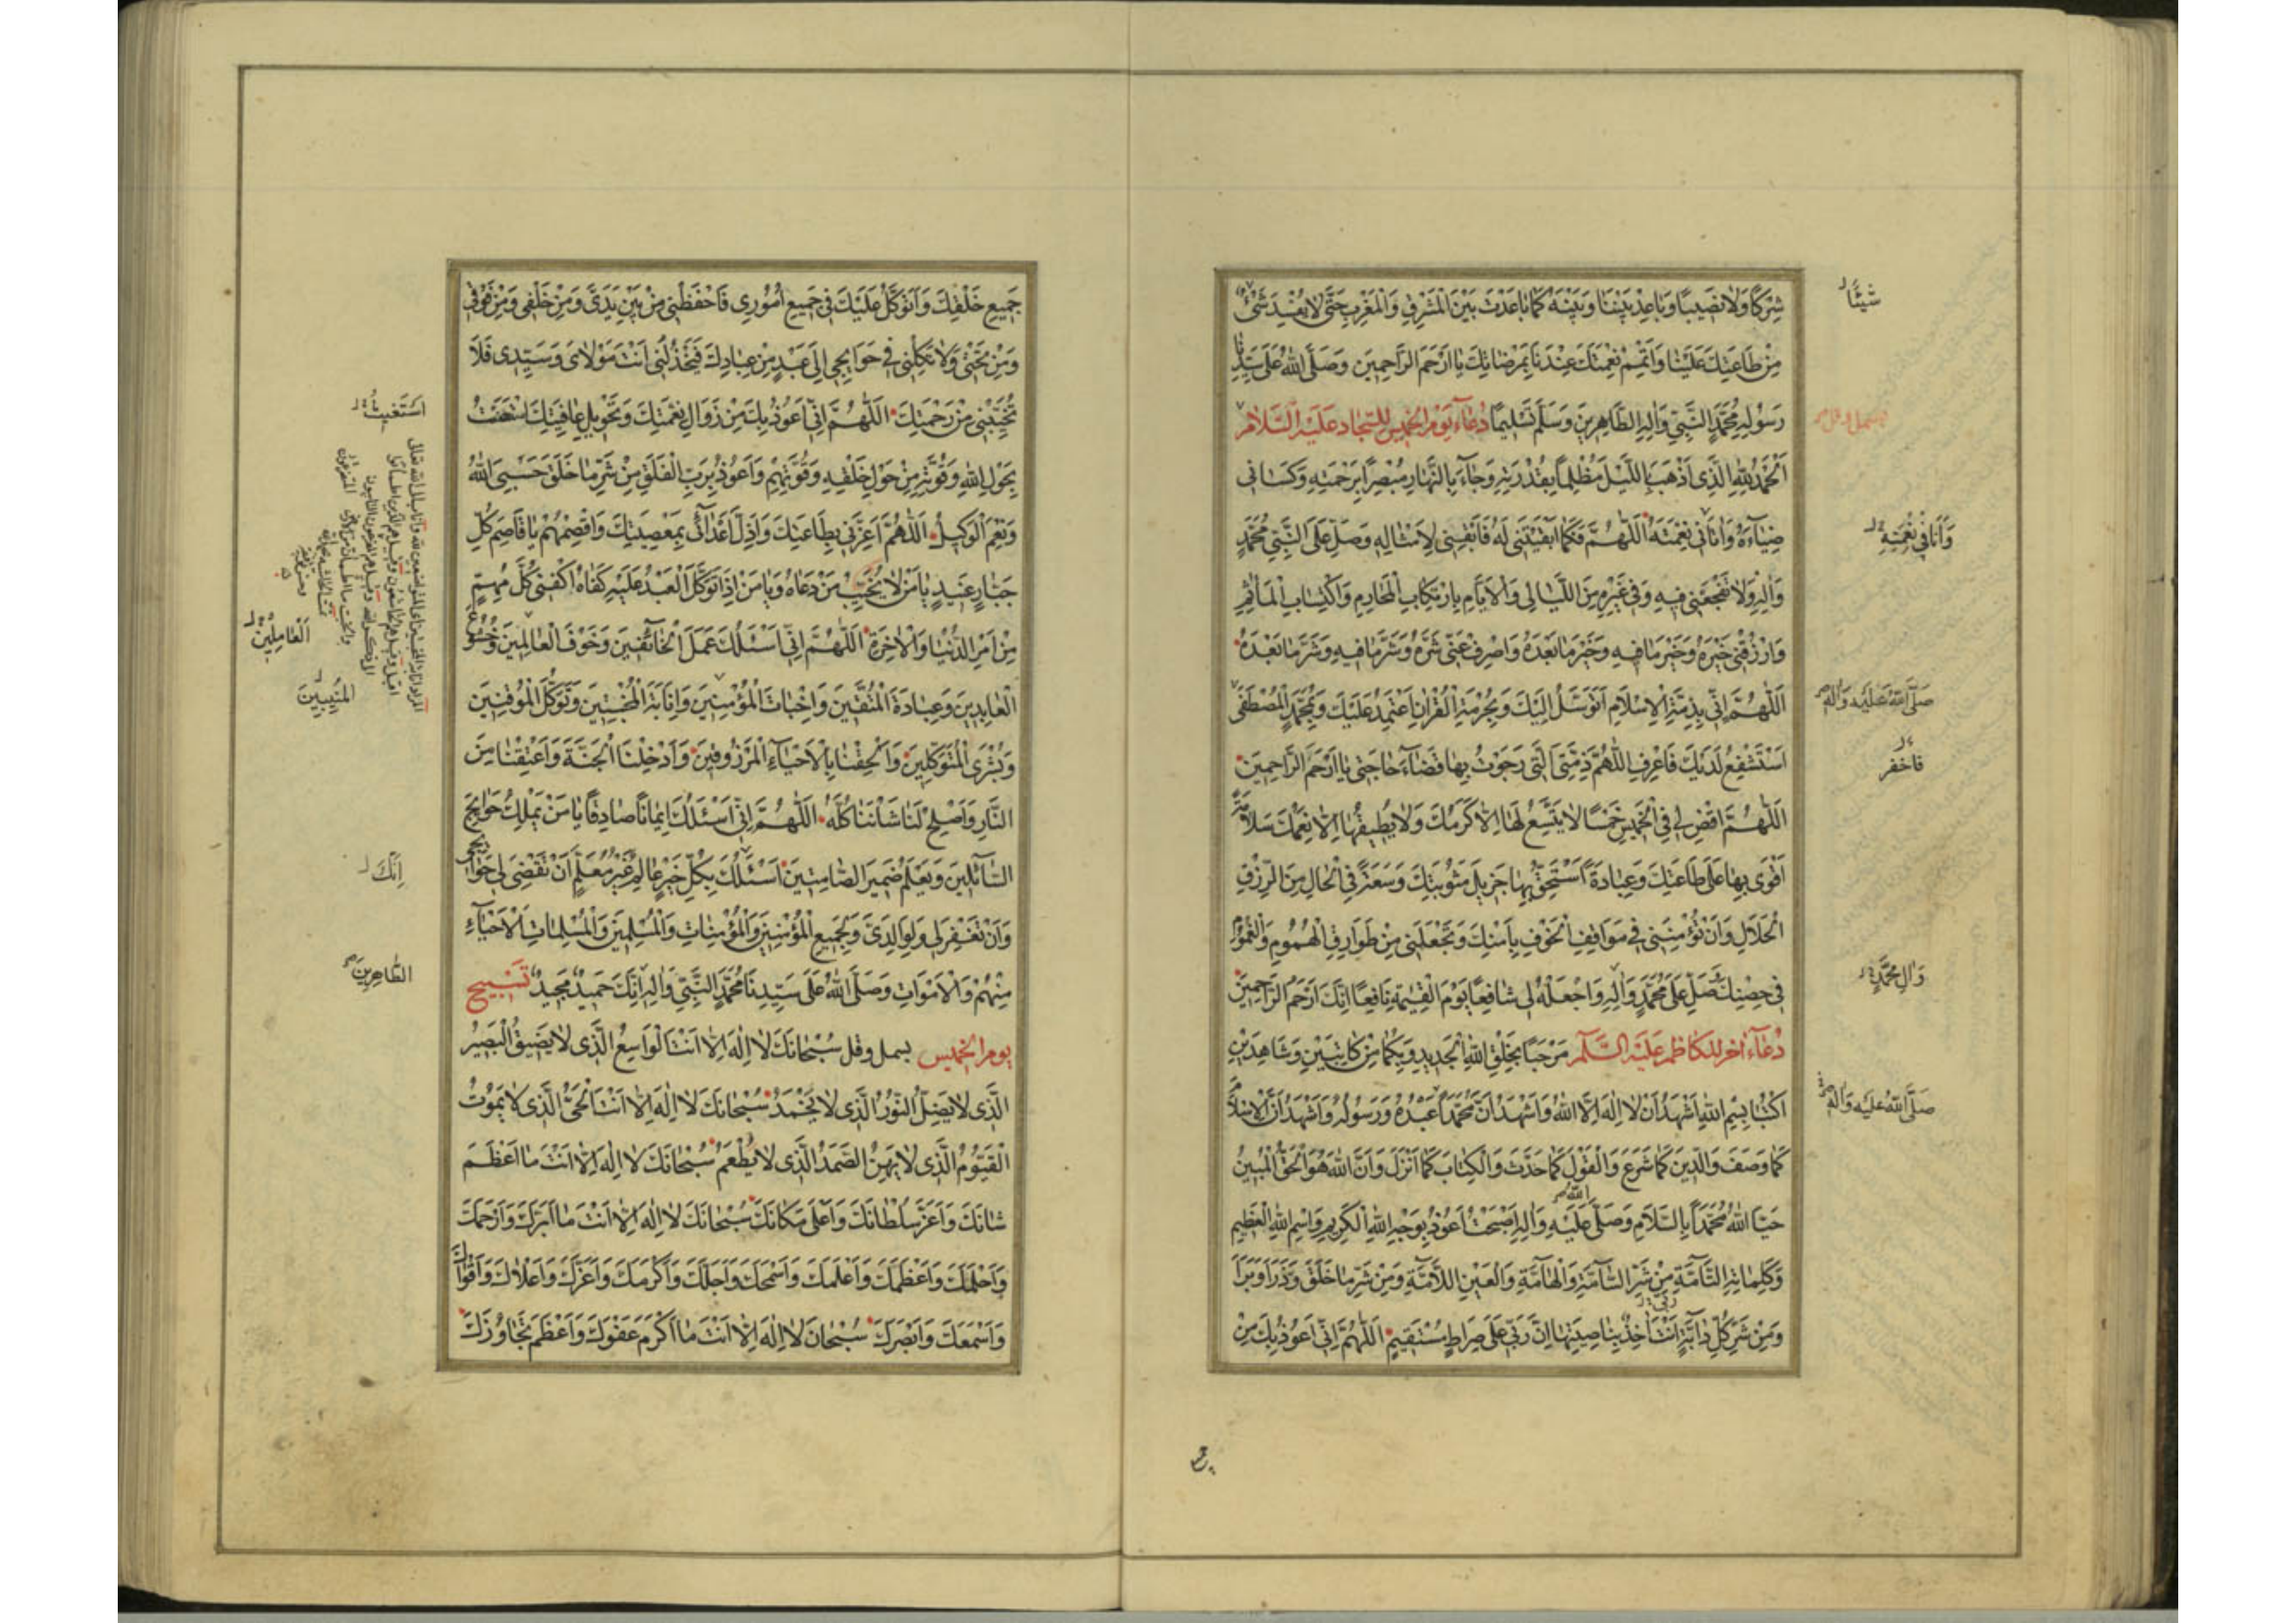 شِرْكًا وَلَا نَصِيبًا وَبَاعِدْ بَيْنَنَا وَبَيْنَهُ كَمَا بَاعَدْتَ بَيْنَ الْمَشْرِقِ وَالْمَغْرِبِ حَتَّى لَا يُفْسِدَ شَيْءٌ
شَيْئًا
مِنْ طَاعَتِكَ عَلَيْنَا وَأَتْمِمْ نِعْمَتَكَ عِنْدَنَا بِمَرْضَاتِكَ يَا أَرْحَمَ الرَّاحِمِينَ وَصَلَّى اللهُ عَلَى سَيِّدِنَا
رَسُولِهِ مُحَمَّدٍ النَّبِيِّ وَآلِهِ الطَّاهِرِينَ وَسَلَّمَ تَسْلِيمًا دُعَاءُ يَوْمِ الْخَمِيسِ لِلسَّجَّادِ عَلَيْهِ السَّلَامُ
اَلْحَمْدُ لِلّٰهِ الَّذِي أَذْهَبَ اللَّيْلَ مُظْلِمًا بِقُدْرَتِهِ وَجَاءَ بِالنَّهَارِ مُبْصِرًا بِرَحْمَتِهِ وَكَسَانِي
ضِيَاءَهُ وَاٰتَانِي نِعْمَتَهُ اَللّٰهُمَّ فَكَمَا أَبْقَيْتَنِي لَهُ فَأَبْقِنِي لِأَمْثَالِهِ وَصَلِّ عَلَى النَّبِيِّ مُحَمَّدٍ
وَأَنَا فِي نِعْمَتِهِ
وَآلِهِ وَلَا تَفْجَعْنِي فِيهِ وَفِي غَيْرِهِ مِنَ اللَّيَالِي وَالْأَيَّامِ بِارْتِكَابِ الْمَحَارِمِ وَاكْتِسَابِ الْمَآثِمِ
وَارْزُقْنِي خَيْرَهُ وَخَيْرَ مَا فِيهِ وَخَيْرَ مَا بَعْدَهُ وَاصْرِفْ عَنِّي شَرَّهُ وَشَرَّ مَا فِيهِ وَشَرَّ مَا بَعْدَهُ
اَللّٰهُمَّ إِنِّي بِذِمَّةِ الْإِسْلَامِ أَتَوَسَّلُ إِلَيْكَ وَبِحُرْمَةِ الْقُرْآنِ أَعْتَمِدُ عَلَيْكَ وَبِمُحَمَّدٍ الْمُصْطَفَى
صَلَّى اللهُ عَلَيْهِ وَآلِهِ
أَسْتَشْفِعُ لَدَيْكَ فَاعْرِفِ اللّٰهُمَّ ذِمَّتِيَ الَّتِي رَجَوْتُ بِهَا قَضَاءَ حَاجَتِي يَا أَرْحَمَ الرَّاحِمِينَ
فاخفر
اَللّٰهُمَّ اقْضِ لِي فِي الْخَمِيسِ خَمْسًا لَا يَتَّسِعُ لَهَا إِلَّا كَرَمُكَ وَلَا يُطِيقُهَا إِلَّا نِعَمُكَ سَلَامَةً
أَقْوَى بِهَا عَلَى طَاعَتِكَ وَعِبَادَةً أَسْتَحِقُّ بِهَا جَزِيلَ مَثُوبَتِكَ وَسَعَةً فِي الْحَالِ مِنَ الرِّزْقِ
الْحَلَالِ وَأَنْ تُؤْمِنَنِي فِي مَوَاقِفِ الْخَوْفِ بِأَمْنِكَ وَتَجْعَلَنِي مِنْ طَوَارِقِ الْهُمُومِ وَالْغُمُومِ
فِي حِصْنِكَ صَلِّ عَلَى مُحَمَّدٍ وَآلِهِ وَاجْعَلْهُ لِي شَافِعًا يَوْمَ الْقِيٰمَةِ نَافِعًا إِنَّكَ أَرْحَمُ الرَّاحِمِينَ
وَآلِ مُحَمَّدٍ
دُعَاءٌ اٰخَرُ لِلْكَاظِمِ عَلَيْهِ السَّلَامُ مَرْحَبًا بِخَلْقِ اللهِ الْجَدِيدِ وَبِكُمَا مِنْ كَاتِبَيْنِ وَشَاهِدَيْنِ
اُكْتُبَا بِسْمِ اللهِ أَشْهَدُ أَنْ لَا إِلٰهَ إِلَّا اللهُ وَأَشْهَدُ أَنَّ مُحَمَّدًا عَبْدُهُ وَرَسُولُهُ وَأَشْهَدُ أَنَّ الْإِسْلَامَ
صَلَّى اللهُ عَلَيْهِ وَآلِهِ
كَمَا وَصَفَ وَالدِّينَ كَمَا شَرَعَ وَالْقَوْلَ كَمَا حَدَّثَ وَالْكِتَابَ كَمَا أَنْزَلَ وَأَنَّ اللهَ هُوَ الْحَقُّ الْمُبِينُ
حَيَّا اللهُ مُحَمَّدًا بِالسَّلَامِ وَصَلَّى اللهُ عَلَيْهِ وَآلِهِ أَصْبَحْتُ أَعُوذُ بِوَجْهِ اللهِ الْكَرِيمِ وَاسْمِ اللهِ الْعَظِيمِ
وَكَلِمَاتِهِ التَّامَّةِ مِنْ شَرِّ السَّامَّةِ وَالْهَامَّةِ وَالْعَيْنِ اللَّامَّةِ وَمِنْ شَرِّ مَا خَلَقَ وَذَرَأَ وَبَرَأَ
وَمِنْ شَرِّ كُلِّ دَابَّةٍ أَنْتَ اٰخِذٌ بِنَاصِيَتِهَا إِنَّ رَبِّي عَلَى صِرَاطٍ مُسْتَقِيمٍ اَللّٰهُمَّ إِنِّي أَعُوذُ بِكَ مِنْ
جَمِيعِ خَلْقِكَ وَأَتَوَكَّلُ عَلَيْكَ فِي جَمِيعِ أُمُورِي فَاحْفَظْنِي مِنْ بَيْنِ يَدَيَّ وَمِنْ خَلْفِي وَمِنْ فَوْقِي
وَمِنْ تَحْتِي وَلَا تَكِلْنِي فِي حَوَائِجِي إِلَى عَبْدٍ مِنْ عِبَادِكَ فَيَخْذُلَنِي أَنْتَ مَوْلَايَ وَسَيِّدِي فَلَا
تُخَيِّبْنِي مِنْ رَحْمَتِكَ اَللّٰهُمَّ إِنِّي أَعُوذُ بِكَ مِنْ زَوَالِ نِعْمَتِكَ وَتَحْوِيلِ عَافِيَتِكَ اسْتَعَنْتُ
أَسْتَغِيثُ
بِحَوْلِ اللهِ وَقُوَّتِهِ مِنْ حَوْلِ خَلْقِهِ وَقُوَّتِهِمْ وَأَعُوذُ بِرَبِّ الْفَلَقِ مِنْ شَرِّ مَا خَلَقَ حَسْبِيَ اللهُ
وَنِعْمَ الْوَكِيلُ اَللّٰهُمَّ أَعِزَّنِي بِطَاعَتِكَ وَأَذِلَّ أَعْدَائِي بِمَعْصِيَتِكَ وَاقْصِمْهُمْ يَا قَاصِمَ كُلِّ
جَبَّارٍ عَنِيدٍ يَا مَنْ لَا يُخَيِّبُ مَنْ دَعَاهُ وَيَا مَنْ إِذَا تَوَكَّلَ الْعَبْدُ عَلَيْهِ كَفَاهُ اكْفِنِي كُلَّ مُهِمٍّ
مِنْ أَمْرِ الدُّنْيَا وَالْاٰخِرَةِ اَللّٰهُمَّ إِنِّي أَسْئَلُكَ عَمَلَ الْخَائِفِينَ وَخَوْفَ الْعَالِمِينَ وَخُشُوعَ
الْعَامِلِينَ
الْعَابِدِينَ وَعِبَادَةَ الْمُتَّقِينَ وَإِخْبَاتَ الْمُؤْمِنِينَ وَإِنَابَةَ الْمُخْبِتِينَ وَتَوَكُّلَ الْمُوقِنِينَ
الْمُنِيبِينَ
وَبُشْرَى الْمُتَوَكِّلِينَ وَأَلْحِقْنَا بِالْأَحْيَاءِ الْمَرْزُوقِينَ وَأَدْخِلْنَا الْجَنَّةَ وَأَعْتِقْنَا مِنَ
النَّارِ وَأَصْلِحْ لَنَا شَأْنَنَا كُلَّهُ اَللّٰهُمَّ إِنِّي أَسْئَلُكَ إِيمَانًا صَادِقًا يَا مَنْ يَمْلِكُ حَوَائِجَ
السَّائِلِينَ وَيَعْلَمُ ضَمِيرَ الصَّامِتِينَ أَسْئَلُكَ بِكُلِّ خَيْرٍ عَالِمٌ غَيْرُ مُعَلَّمٍ أَنْ تَقْضِيَ لِي حَوَائِجِي
إِنَّكَ
وَأَنْ تَغْفِرَ لِي وَلِوَالِدَيَّ وَلِجَمِيعِ الْمُؤْمِنِينَ وَالْمُؤْمِنَاتِ وَالْمُسْلِمِينَ وَالْمُسْلِمَاتِ الْأَحْيَاءِ
مِنْهُمْ وَالْأَمْوَاتِ وَصَلَّى اللهُ عَلَى سَيِّدِنَا مُحَمَّدٍ النَّبِيِّ وَآلِهِ إِنَّكَ حَمِيدٌ مَجِيدٌ تَسْبِيحُ
الطَّاهِرِينَ
يَوْمِ الْخَمِيسِ بسمل وقل سُبْحَانَكَ لَا إِلٰهَ إِلَّا أَنْتَ الْوَاسِعُ الَّذِي لَا يَضِيقُ الْبَصِيرُ
الَّذِي لَا يَضِلُّ النُّورُ الَّذِي لَا يَخْمَدُ سُبْحَانَكَ لَا إِلٰهَ إِلَّا أَنْتَ الْحَيُّ الَّذِي لَا يَمُوتُ
الْقَيُّومُ الَّذِي لَا يَهِنُ الصَّمَدُ الَّذِي لَا يُطْعَمُ سُبْحَانَكَ لَا إِلٰهَ إِلَّا أَنْتَ مَا أَعْظَمَ
شَانَكَ وَأَعَزَّ سُلْطَانَكَ وَأَعْلَى مَكَانَكَ سُبْحَانَكَ لَا إِلٰهَ إِلَّا أَنْتَ مَا أَبَرَّكَ وَأَرْحَمَكَ
وَأَحْلَمَكَ وَأَعْظَمَكَ وَأَعْلَمَكَ وَأَسْمَحَكَ وَأَجَلَّكَ وَأَكْرَمَكَ وَأَعَزَّكَ وَأَعْلَاكَ وَأَقْوَاكَ
وَأَسْمَعَكَ وَأَبْصَرَكَ سُبْحَانَ لَا إِلٰهَ إِلَّا أَنْتَ مَا أَكْرَمَ عَفْوَكَ وَأَعْظَمَ تَجَاوُزَكَ